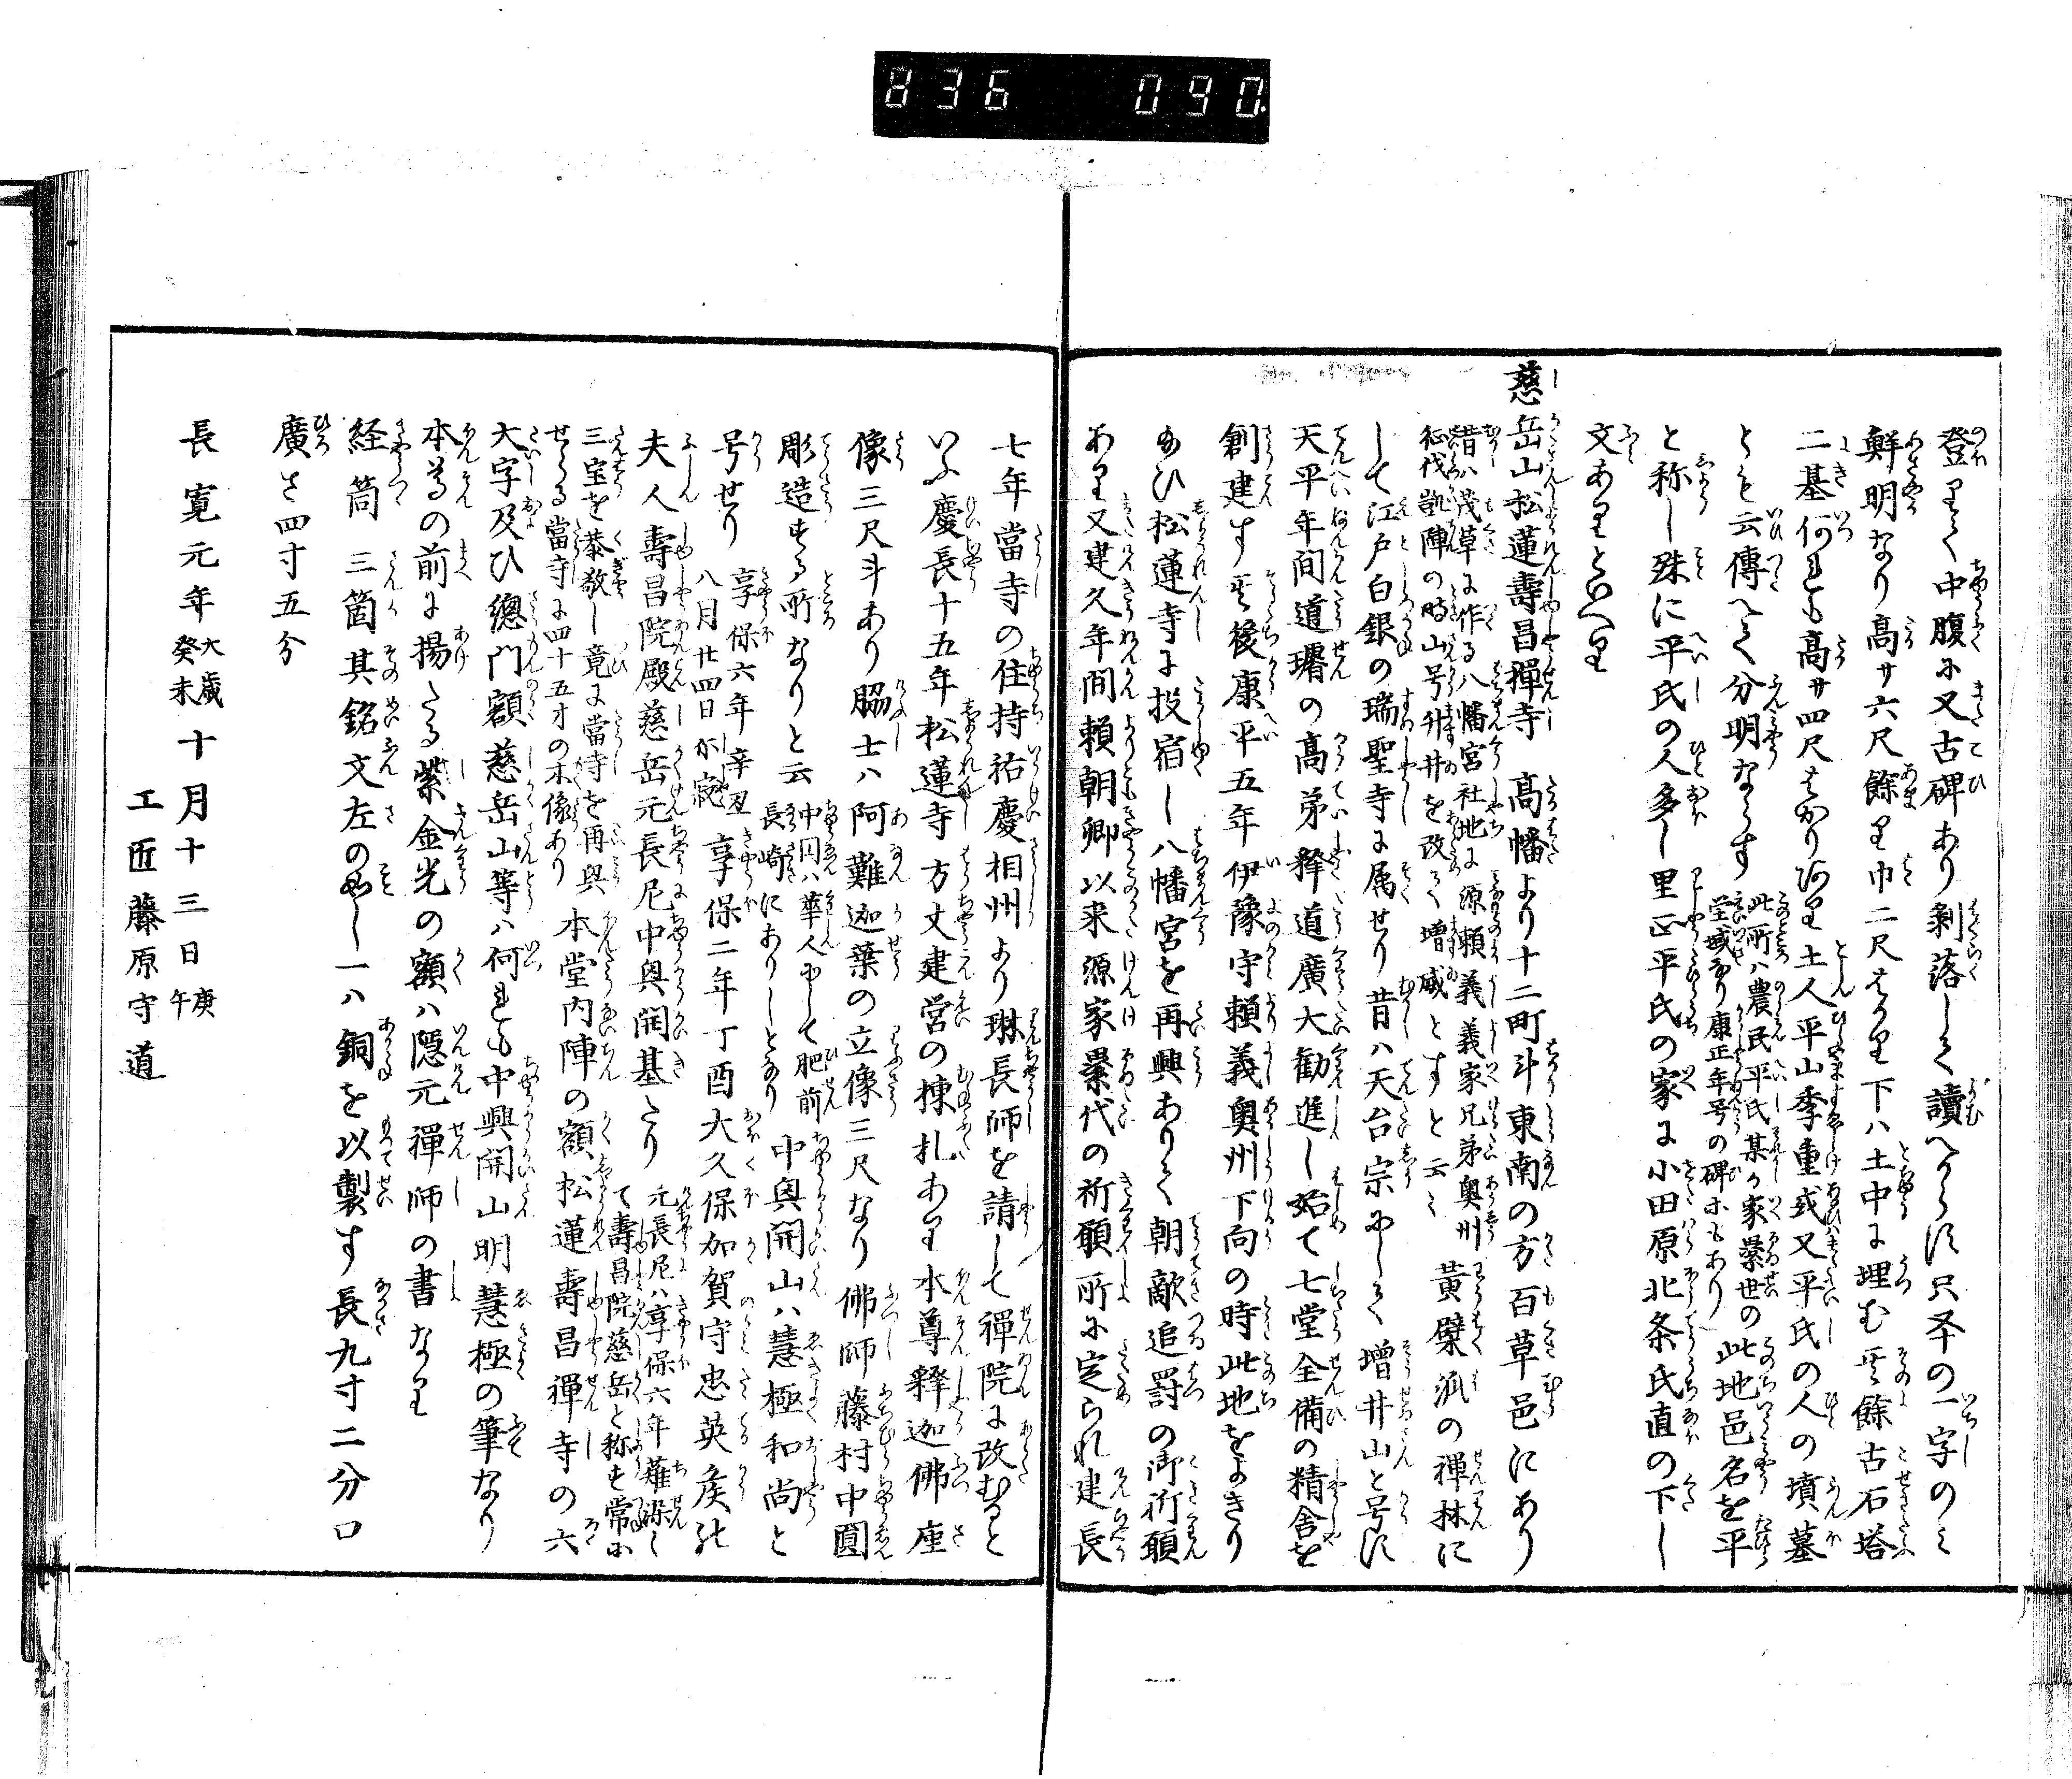 836 090
登りて中腹に又古碑あり剥落して讀へからす只平の一字のミ
鮮明なり高サ六尺餘り巾二尺はかり下ハ土中に埋む其餘古石塔
二基何れも高サ四尺はかりあり土人平山季重或又平氏の人の墳墓
とも云傳へて分明ならす
此所ハ農民平氏某の家累世の
塋域なり康正年号の碑ホもあり
此地邑名を平
と称し殊に平氏の人多し里正平氏の家に小田原北条氏直の下し
文ありといへり
慈岳山松蓮壽昌禪寺 高幡より十二町斗東南の方百草邑にあり
昔ハ茂草に作る八幡宮社地に源頼義義家兄弟奥州
征伐凱陣の時山号升井を改て増威とすと云云
黄檗派の禪林に
して江戸白銀の瑞聖寺に属せり昔ハ天台宗にして増井山と号す
天平年間道璿の高弟釋道廣大勧進し始て七堂全備の精舎を
創建す其後康平五年伊豫守頼義奥州下向の時此地をよきり
給ひ松蓮寺に投宿し八幡宮を再興ありて朝敵追罸の御祈願
あり又建久年間頼朝卿以来源家累代の祈願所に定られ建長
七年當寺の住持祐慶相州より琳長師を請して禪院に改むると
いふ慶長十五年松蓮寺方丈建営の棟札あり本尊釋迦佛座
像三尺斗あり脇士ハ阿難迦葉の立像三尺なり佛師藤村中圓
彫造する所なりと云
中円ハ華人にして肥前
長崎にありしとなり
中興開山ハ慧極和尚と
号せり
享保六年辛丑
八月廿四日示寂
享保二年丁酉大久保加賀守忠英矦の
夫人壽昌院殿慈岳元長尼中興開基たり
元長尼ハ享保六年薙染し
て壽昌院慈岳と称す常に
三宝を恭敬し竟に當寺を再興
せらる當寺に四十五才の木像あり
本堂内陣の額松蓮壽昌禪寺の六
大字及ひ總門額慈岳山等ハ何れも中興開山明慧極の筆なり
本尊の前に揚たる紫金光の額ハ隠元禪師の書なり
経筒 三箇其銘文左の如し一ハ銅を以製す長九寸二分口
廣さ四寸五分
長寛元年大歳癸未十月十三日庚午
工匠藤原守道